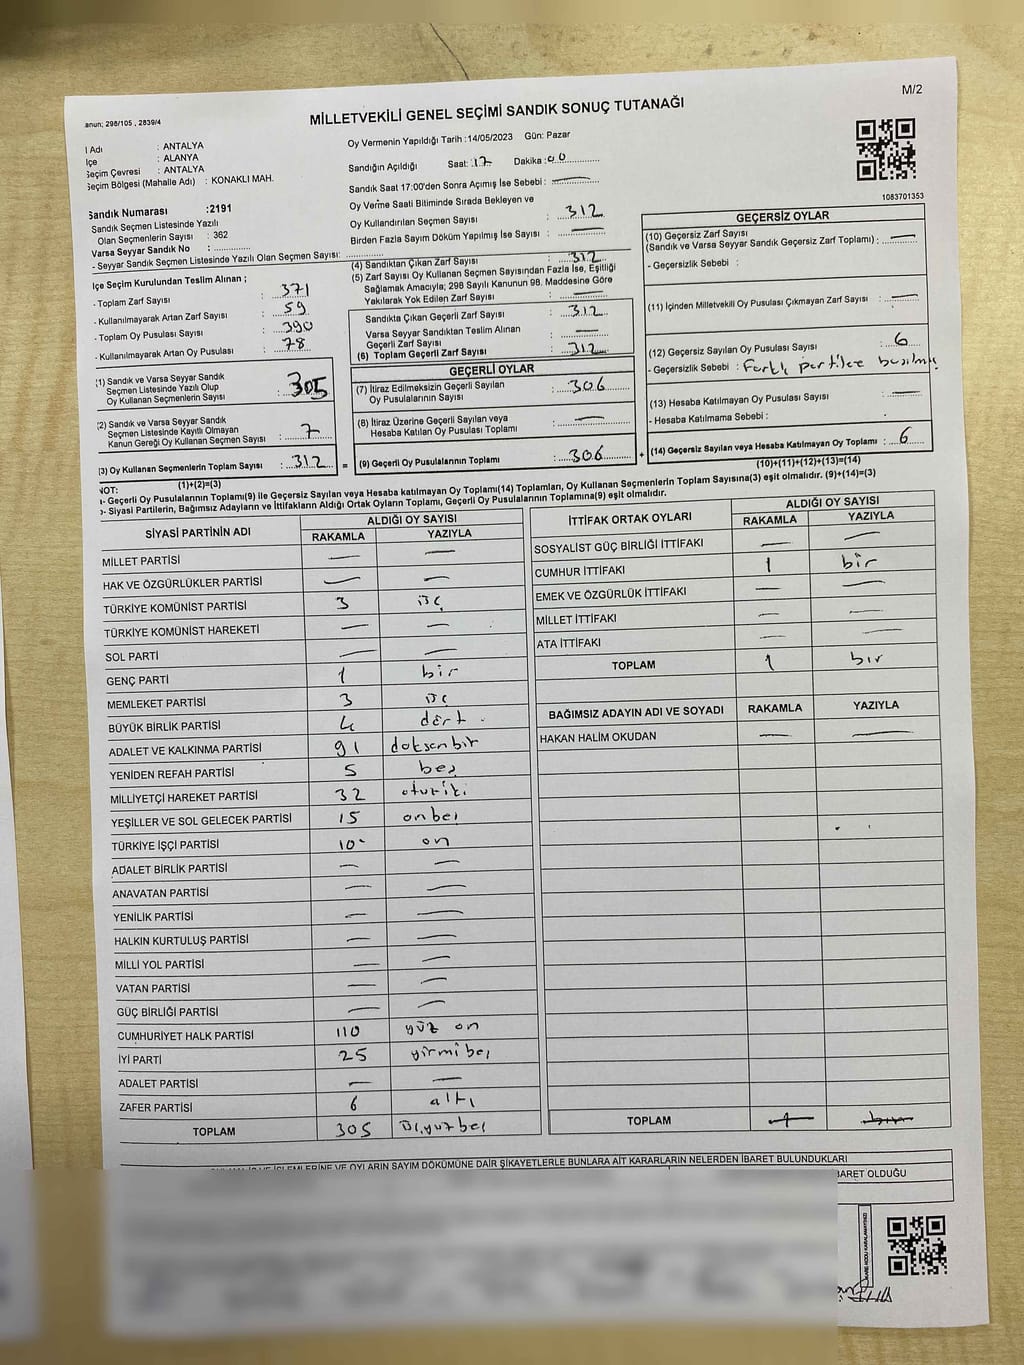 M/2
anun: 298/105 , 2839/4
MİLLETVEKİLİ GENEL SEÇİMİ SANDIK SONUÇ TUTANAĞI
l Adı : ANTALYA
lçe : ALANYA
Seçim Çevresi : ANTALYA
Seçim Bölgesi (Mahalle Adı) : KONAKLI MAH.
Sandık Numarası :2191
Sandık Seçmen Listesinde Yazılı
Olan Seçmenlerin Sayısı : 362
Varsa Seyyar Sandık No :
- Seyyar Sandık Seçmen Listesinde Yazılı Olan Seçmen Sayısı:
lçe Seçim Kurulundan Teslim Alınan ;
- Toplam Zarf Sayısı : 371
- Kullanılmayarak Artan Zarf Sayısı : 59
- Toplam Oy Pusulası Sayısı : 390
- Kullanılmayarak Artan Oy Pusulası : 78
(1) Sandık ve Varsa Seyyar Sandık
Seçmen Listesinde Yazılı Olup
Oy Kullanan Seçmenlerin Sayısı : 305
(2) Sandık ve Varsa Seyyar Sandık
Seçmen Listesinde Kayıtlı Olmayan
Kanun Gereği Oy Kullanan Seçmen Sayısı : 7
(3) Oy Kullanan Seçmenlerin Toplam Sayısı : 312 =
(1)+(2)=(3)
Oy Vermenin Yapıldığı Tarih :14/05/2023 Gün: Pazar
Sandığın Açıldığı Saat: 17 Dakika: 00
Sandık Saat 17:00'den Sonra Açımış İse Sebebi : —
Oy Verme Saati Bitiminde Sırada Bekleyen ve
Oy Kullandırılan Seçmen Sayısı : 312
Birden Fazla Sayım Döküm Yapılmış İse Sayısı : —
(4) Sandıktan Çıkan Zarf Sayısı : 312
(5) Zarf Sayısı Oy Kullanan Seçmen Sayısından Fazla İse, Eşitliği
Sağlamak Amacıyla; 298 Sayılı Kanunun 98. Maddesine Göre
Yakılarak Yok Edilen Zarf Sayısı : —
Sandıkta Çıkan Geçerli Zarf Sayısı : 312
Varsa Seyyar Sandıktan Teslim Alınan
Geçerli Zarf Sayısı : —
(6) Toplam Geçerli Zarf Sayısı : 312
GEÇERLİ OYLAR
(7) İtiraz Edilmeksizin Geçerli Sayılan
Oy Pusulalarının Sayısı : 306
(8) İtiraz Üzerine Geçerli Sayılan veya
Hesaba Katılan Oy Pusulası Toplamı : —
(9) Geçerli Oy Pusulalarının Toplamı : 306 +
1083701353
GEÇERSİZ OYLAR
(10) Geçersiz Zarf Sayısı
(Sandık ve Varsa Seyyar Sandık Geçersiz Zarf Toplamı) : —
- Geçersizlik Sebebi :
(11) İçinden Milletvekili Oy Pusulası Çıkmayan Zarf Sayısı : —
(12) Geçersiz Sayılan Oy Pusulası Sayısı : 6
- Geçersizlik Sebebi : Farklı partilere basılmış
(13) Hesaba Katılmayan Oy Pusulası Sayısı : —
- Hesaba Katılmama Sebebi :
(14) Geçersiz Sayılan veya Hesaba Katılmayan Oy Toplamı : 6
(10)+(11)+(12)+(13)=(14)
NOT:
- Geçerli Oy Pusulalarının Toplamı(9) ile Geçersiz Sayılan veya Hesaba katılmayan Oy Toplamı(14) Toplamları, Oy Kullanan Seçmenlerin Toplam Sayısına(3) eşit olmalıdır. (9)+(14)=(3)
- Siyasi Partilerin, Bağımsız Adayların ve İttifakların Aldığı Ortak Oyların Toplamı, Geçerli Oy Pusulalarının Toplamına(9) eşit olmalıdır.
SİYASİ PARTİNİN ADI ALDIĞI OY SAYISI
RAKAMLA YAZIYLA
MİLLET PARTİSİ — —
HAK VE ÖZGÜRLÜKLER PARTİSİ — —
TÜRKİYE KOMÜNİST PARTİSİ 3 üç
TÜRKİYE KOMÜNİST HAREKETİ — —
SOL PARTİ — —
GENÇ PARTİ 1 bir
MEMLEKET PARTİSİ 3 üç
BÜYÜK BİRLİK PARTİSİ 4 dört
ADALET VE KALKINMA PARTİSİ 91 doksanbir
YENİDEN REFAH PARTİSİ 5 beş
MİLLİYETÇİ HAREKET PARTİSİ 32 otuziki
YEŞİLLER VE SOL GELECEK PARTİSİ 15 onbeş
TÜRKİYE İŞÇİ PARTİSİ 10 on
ADALET BİRLİK PARTİSİ — —
ANAVATAN PARTİSİ — —
YENİLİK PARTİSİ — —
HALKIN KURTULUŞ PARTİSİ — —
MİLLİ YOL PARTİSİ — —
VATAN PARTİSİ — —
GÜÇ BİRLİĞİ PARTİSİ — —
CUMHURİYET HALK PARTİSİ 110 yüz on
İYİ PARTİ 25 yirmibeş
ADALET PARTİSİ — —
ZAFER PARTİSİ 6 altı
TOPLAM 305 üçyüzbeş
İTTİFAK ORTAK OYLARI ALDIĞI OY SAYISI
RAKAMLA YAZIYLA
SOSYALİST GÜÇ BİRLİĞİ İTTİFAKI — —
CUMHUR İTTİFAKI 1 bir
EMEK VE ÖZGÜRLÜK İTTİFAKI — —
MİLLET İTTİFAKI — —
ATA İTTİFAKI — —
TOPLAM 1 bir
BAĞIMSIZ ADAYIN ADI VE SOYADI RAKAMLA YAZIYLA
HAKAN HALİM OKUDAN — —
TOPLAM 1 bir
İŞLEMLERİNE VE OYLARIN SAYIM DÖKÜMÜNE DAİR ŞİKAYETLERLE BUNLARA AİT KARARLARIN NELERDEN İBARET BULUNDUKLARI
BARET OLDUĞU